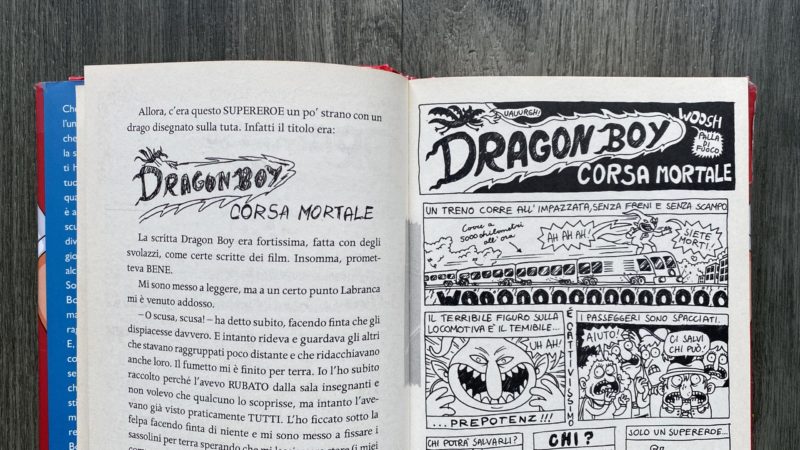 Che
l'un
che
la s
ti h
tuo
qua
è a
scu
dive
gio
alc
So
Bo
ma
rag
E,
di
sti
bat
Allora, c'era questo SUPEREROE un po' strano con un
drago disegnato sulla tuta. Infatti il titolo era:
DRAGON BOY
CORSA MORTALE
La scritta Dragon Boy era fortissima, fatta con degli
svolazzi, come certe scritte dei film. Insomma, promet-
teva BENE.
Mi sono messo a leggere, ma a un certo punto Labranca
mi è venuto addosso.
– O scusa, scusa! – ha detto subito, facendo finta che gli
dispiacesse davvero. E intanto rideva e guardava gli altri
che stavano raggruppati poco distante e che ridacchiavano
anche loro. Il fumetto mi è finito per terra. Io l'ho subito
raccolto perché l'avevo RUBATO dalla sala insegnanti e
non volevo che qualcuno lo scoprisse, ma intanto l'ave-
vano già visto praticamente TUTTI. L'ho ficcato sotto la
felpa facendo finta di niente e mi sono messo a fissare i
sassolini per terra sperando che
UAUURGH!
DRAGON BOY
CORSA MORTALE
WOOSH
PALLA
DI
FUOCO
UN TRENO CORRE ALL'IMPAZZATA, SENZA FRENI E SENZA SCAMPO
Corre a
5000 chilometri
all'ora
AH AH AH!
SIETE
MORTI!
IL TERRIBILE FIGURO SULLA
LOCOMOTIVA È IL TEMIBILE...
UH AH!
...PREPOTENZ!!!
È CATTIVISSIMO
I PASSEGGERI SONO SPACCIATI.
AIUTO!
CI SALVI
CHI PUÒ!
CHI POTRÀ SALVARLI?
CHI?
SOLO UN SUPEREROE...